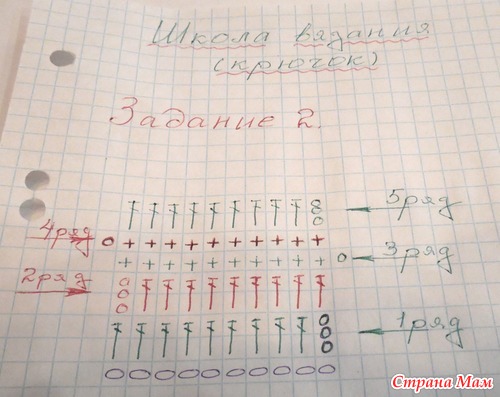 Школа вязания
(крючок)
Задание 2.
5 ряд
4 ряд
3 ряд
2 ряд
1 ряд
Страна Мам